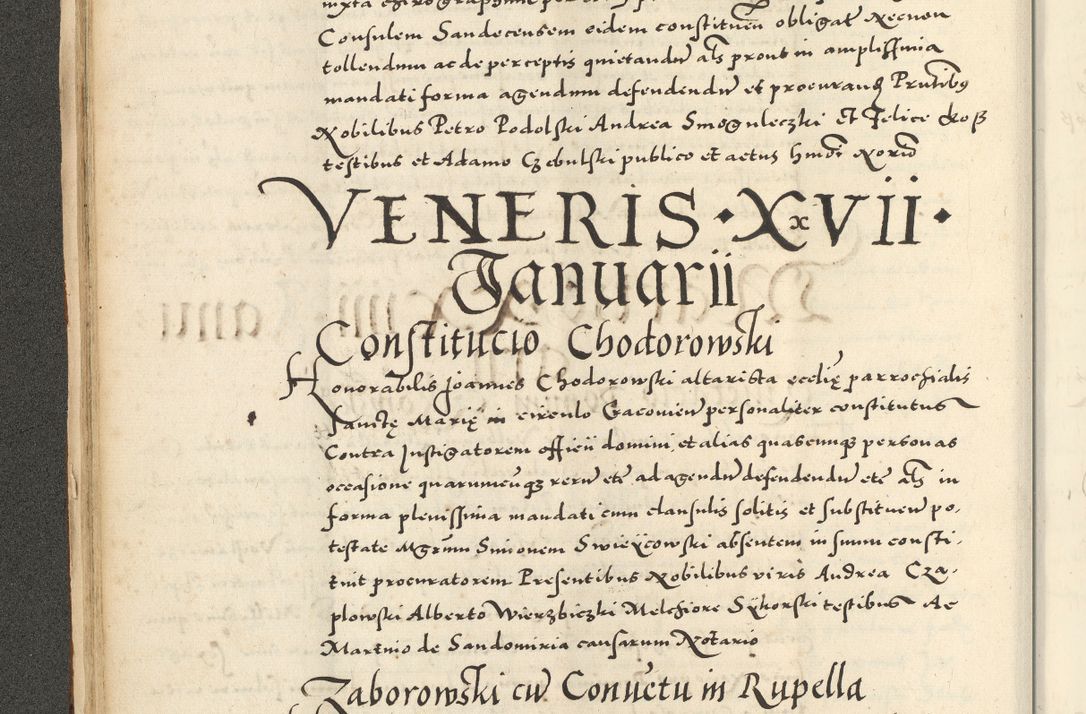 Consulem Sandecensem eidem constituen obligat Necnon
tollendum ac de perceptis quietandu als prout in amplissima
mandati forma agendum defendendu et procurand Pntibq
Nobilibus Petro Podolski Andrea Smoguleczki Et Felice
testibus et Adamo Czebulski publico et actus hmdi Norio
VENERIS · XxVII ·
Januarii
Constitucio Chodorowski
Honorabilis Joannes Chodorowski altarista ecclię parrochialis
Sanctę Marię in circulo Cracovien personaliter constitutus
Contra Instigatorem officii domini et alias quascunq personas
occasione quarumcuq rerum etc ad agendu defendendu etc als in
forma plenissima mandati cum clausulis solitis et substituen po-
testate Mgrum Simonem Swieycowski absentem in suum consti-
tuit procuratorem Presentibus Nobilibus viris Andrea Cza-
plowski Alberto Wierzbiczki Melchiore Sykorski testibus Ac
Martino de Sandomiria causarum Notario
Zaborowski cu Convetu in Rupella